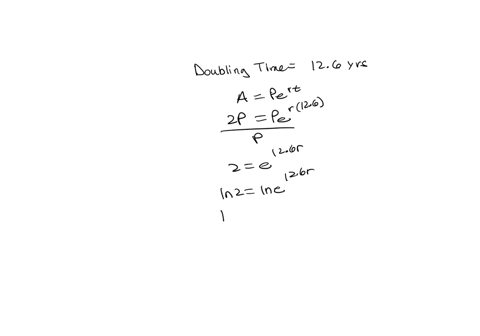 Doubling Time = 12.6 yrs
A = Pe^rt
2P = Pe^r(12.6)
P
2 = e^12.6r
ln2 = lne^12.6r
l